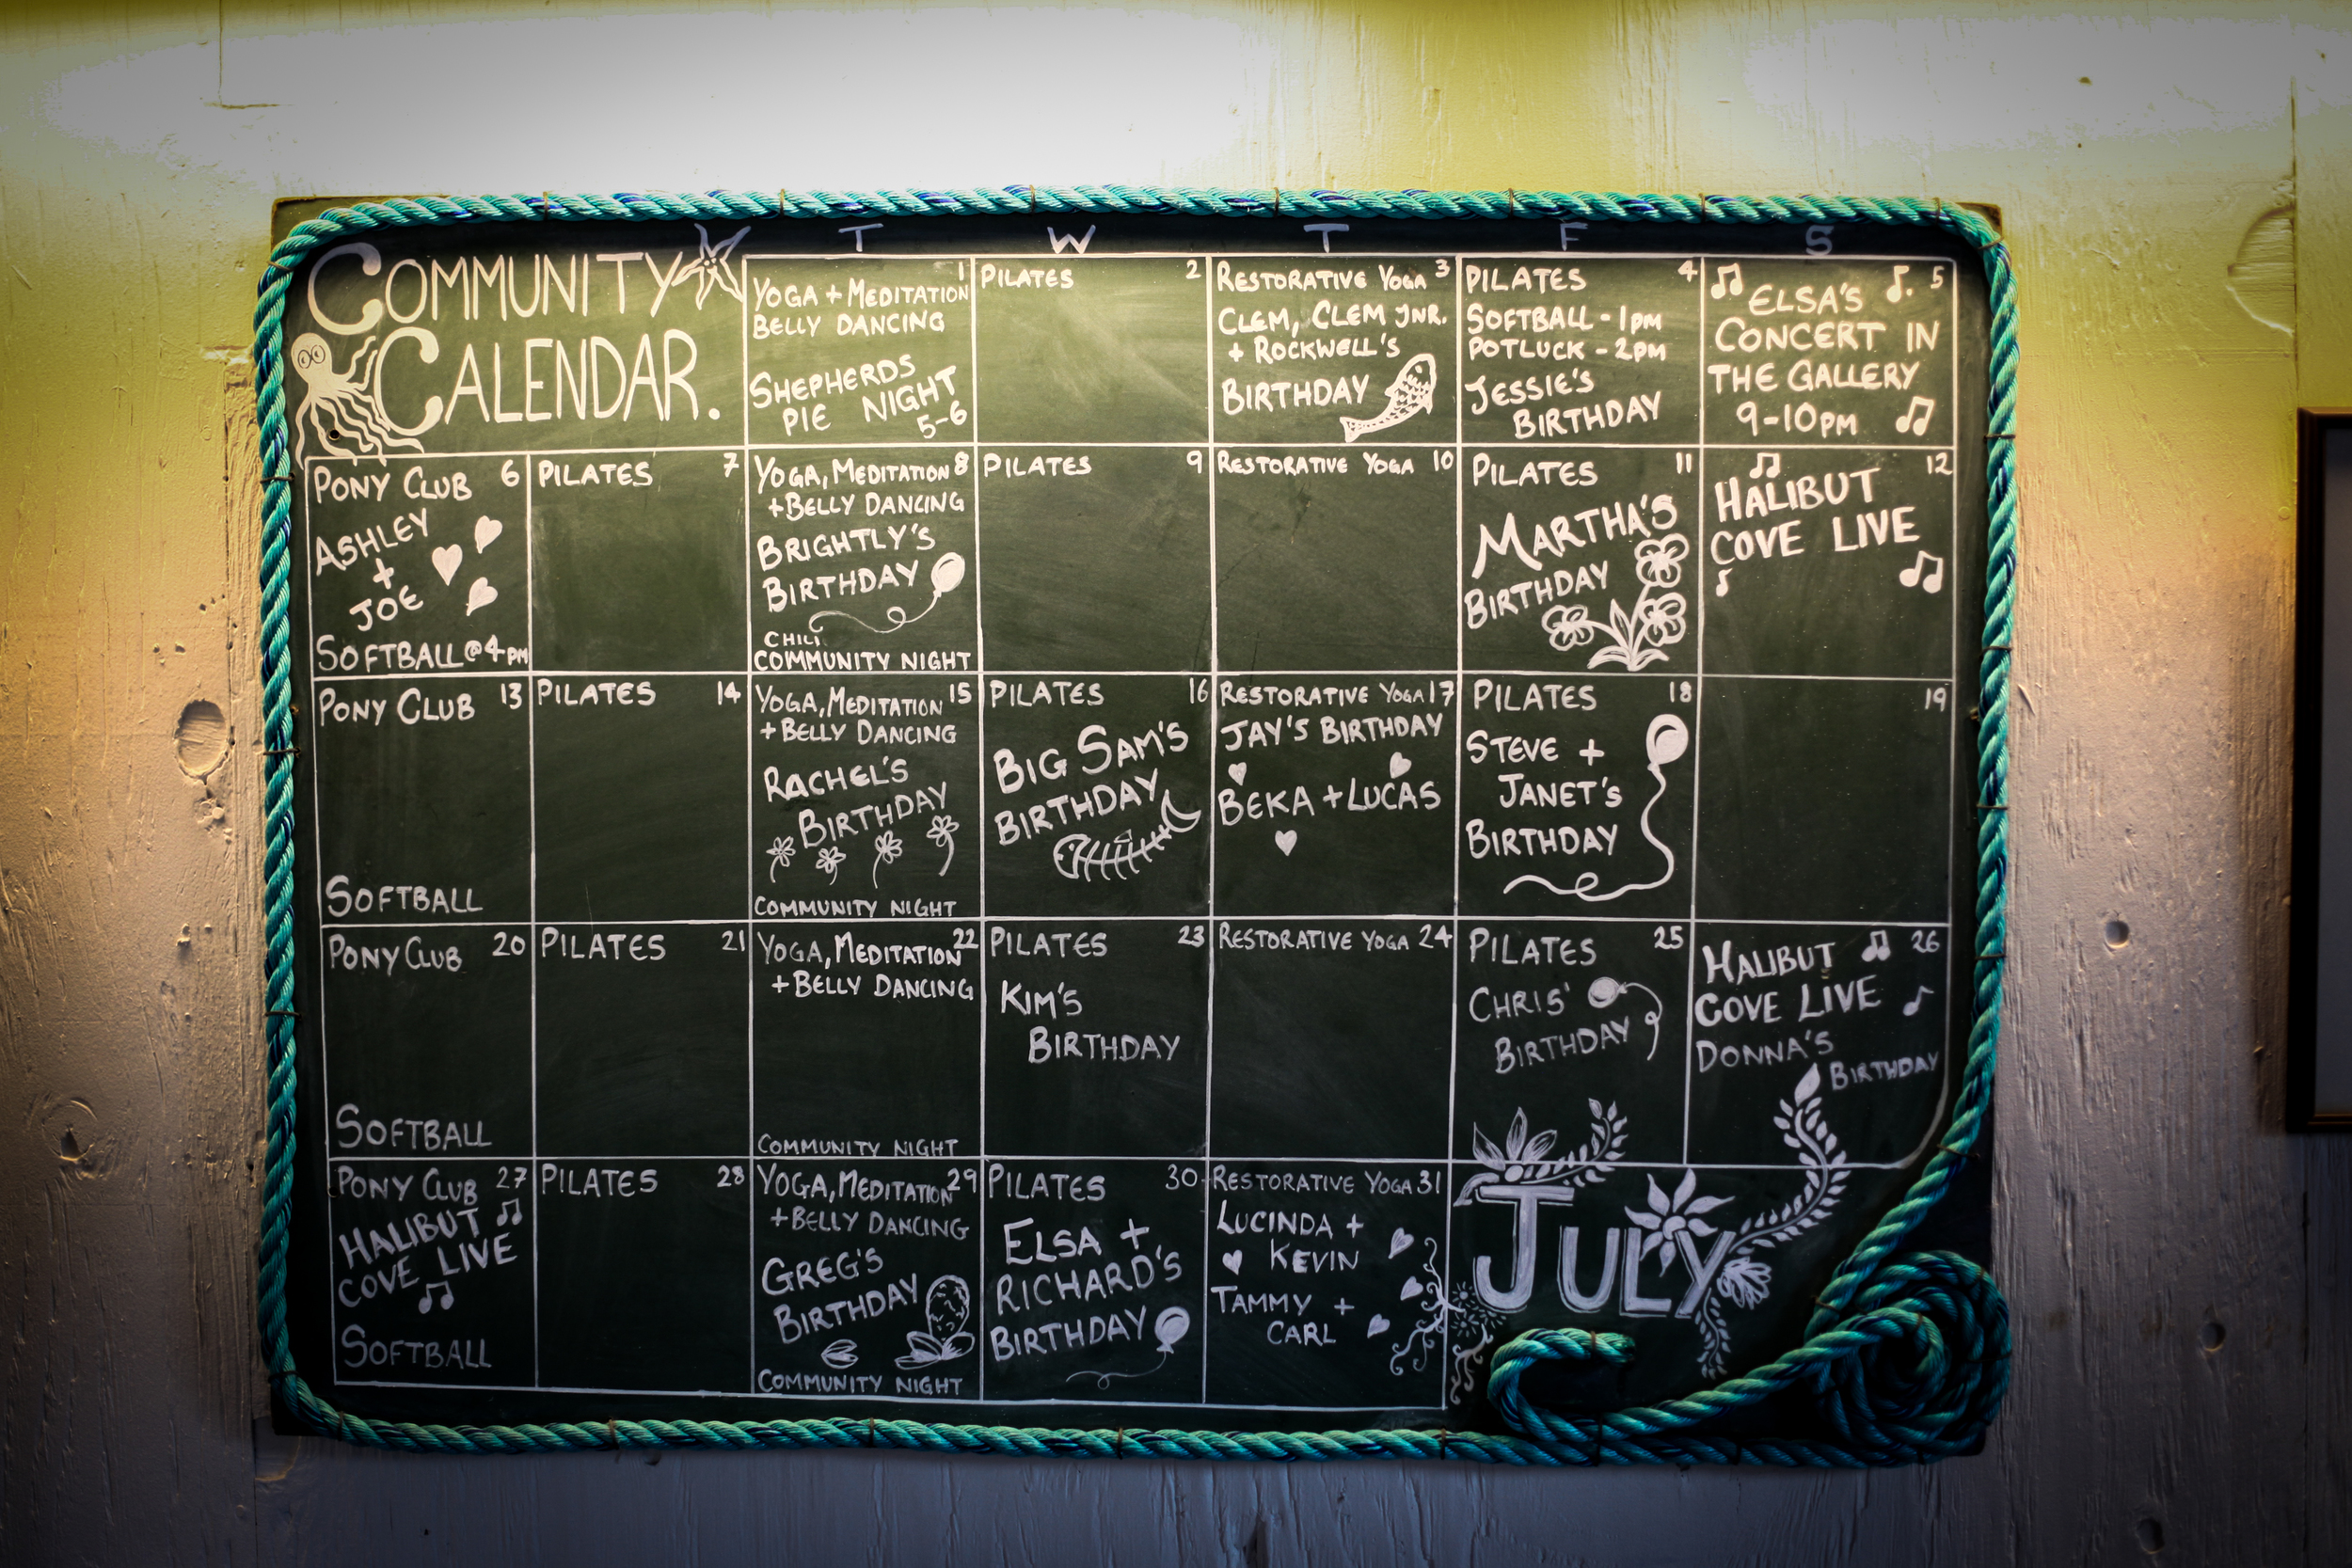 COMMUNITY
CALENDAR.
T W T F S
1
YOGA + MEDITATION
BELLY DANCING
SHEPHERDS
PIE NIGHT
5-6
PILATES 2
RESTORATIVE YOGA 3
CLEM, CLEM JNR.
+ ROCKWELL'S
BIRTHDAY
PILATES 4
SOFTBALL - 1PM
POTLUCK - 2PM
JESSIE'S
BIRTHDAY
5
ELSA'S
CONCERT IN
THE GALLERY
9-10PM
PONY CLUB 6
ASHLEY
+
JOE
SOFTBALL @ 4PM
PILATES 7
YOGA, MEDITATION 8
+ BELLY DANCING
BRIGHTLY'S
BIRTHDAY
CHILI
COMMUNITY NIGHT
PILATES 9
RESTORATIVE YOGA 10
PILATES 11
MARTHA'S
BIRTHDAY
12
HALIBUT
COVE LIVE
PONY CLUB 13
SOFTBALL
PILATES 14
YOGA, MEDITATION 15
+ BELLY DANCING
RACHEL'S
BIRTHDAY
COMMUNITY NIGHT
PILATES 16
BIG SAM'S
BIRTHDAY
RESTORATIVE YOGA 17
JAY'S BIRTHDAY
BEKA + LUCAS
PILATES 18
STEVE +
JANET'S
BIRTHDAY
19
PONY CLUB 20
SOFTBALL
PILATES 21
YOGA, MEDITATION 22
+ BELLY DANCING
COMMUNITY NIGHT
PILATES 23
KIM'S
BIRTHDAY
RESTORATIVE YOGA 24
PILATES 25
CHRIS'
BIRTHDAY
HALIBUT 26
COVE LIVE
DONNA'S
BIRTHDAY
PONY CLUB 27
HALIBUT
COVE LIVE
SOFTBALL
PILATES 28
YOGA, MEDITATION 29
+ BELLY DANCING
GREG'S
BIRTHDAY
COMMUNITY NIGHT
PILATES 30
ELSA +
RICHARD'S
BIRTHDAY
RESTORATIVE YOGA 31
LUCINDA +
KEVIN
TAMMY +
CARL
JULY